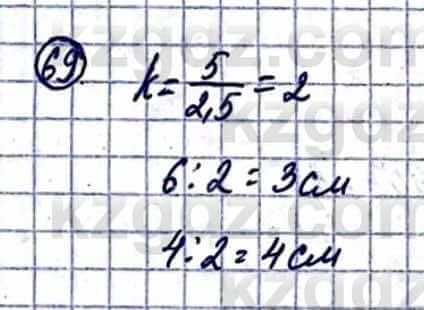 69. k = 5/2,5 = 2
6 : 2 = 3 см
4 : 2 = 4 см
kzgdz.com